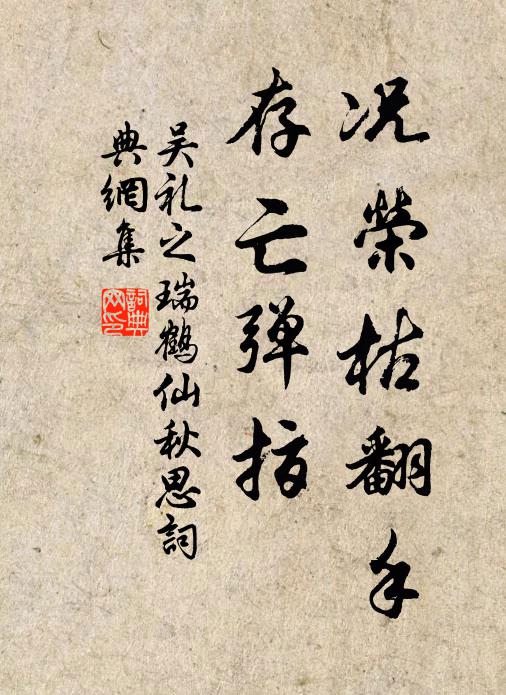 况榮枯翻手
存亡弹指
吴礼之瑞鶴仙秋思詞
典網集
詞典
网印